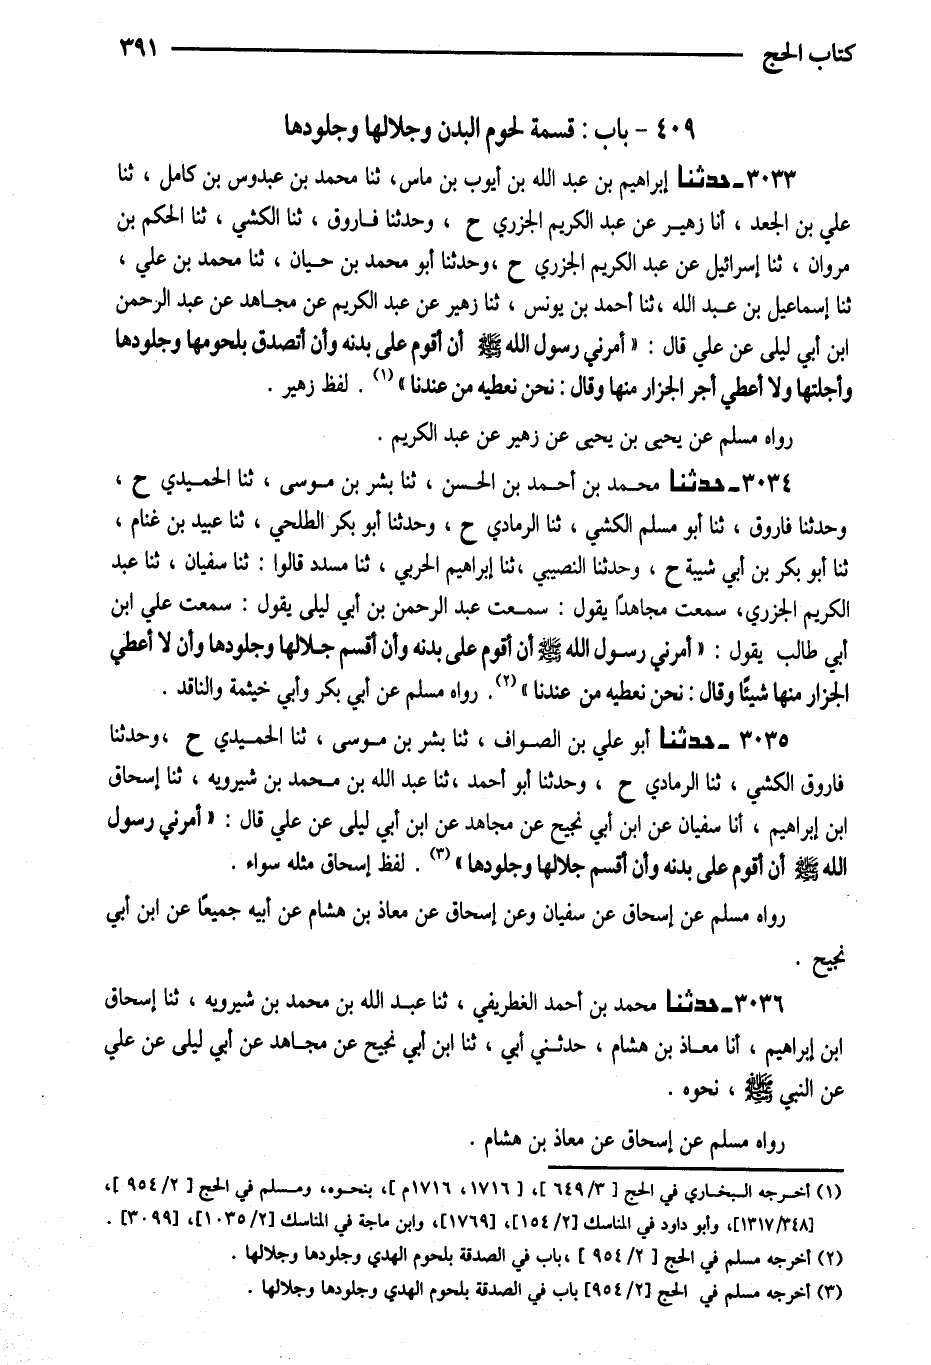 كتاب الحج ٣٩١
٤٠٩ - باب : قسمة لحوم البدن وجلالها وجلودها
٣٠٣٣ـ حدثنا إبراهيم بن عبد الله بن أيوب بن ماس، ثنا محمد بن عبدوس بن كامل ، ثنا
علي بن الجعد ، أنا زهير عن عبد الكريم الجزري ح ، وحدثنا فاروق ، ثنا الكشي ، ثنا الحكم بن
مروان ، ثنا إسرائيل عن عبد الكريم الجزري ح ،وحدثنا أبو محمد بن حيان ، ثنا محمد بن علي ،
ثنا إسماعيل بن عبد الله ،ثنا أحمد بن يونس ، ثنا زهير عن عبد الكريم عن مجاهد عن عبد الرحمن
ابن أبي ليلى عن علي قال : « أمرني رسول الله ﷺ أن أقوم على بدنه وأن أتصدق بلحومها وجلودها
وأجلتها ولا أعطي أجر الجزار منها وقال : نحن نعطيه من عندنا » (١) . لفظ زهير .
رواه مسلم عن يحيى بن يحيى عن زهير عن عبد الكريم .
٣٠٣٤ـ حدثنا محمد بن أحمد بن الحسن ، ثنا بشر بن موسى ، ثنا الحميدي ح ،
وحدثنا فاروق ، ثنا أبو مسلم الكشي ، ثنا الرمادي ح ، وحدثنا أبو بكر الطلحي ، ثنا عبيد بن غنام ،
ثنا أبو بكر بن أبي شيبة ح ، وحدثنا النصيبي ،ثنا إبراهيم الحربي ، ثنا مسدد قالوا : ثنا سفيان ، ثنا عبد
الكريم الجزري، سمعت مجاهدًا يقول : سمعت عبد الرحمن بن أبي ليلى يقول : سمعت علي ابن
أبي طالب يقول : « أمرني رسول الله ﷺ أن أقوم على بدنه وأن أقسم جلالها وجلودها وأن لا أعطي
الجزار منها شيئًا وقال : نحن نعطيه من عندنا » (٢). رواه مسلم عن أبي بكر وأبي خيثمة والناقد .
٣٠٣٥ ـ حدثنا أبو علي بن الصواف ، ثنا بشر بن موسى ، ثنا الحميدي ح ،وحدثنا
فاروق الكشي ، ثنا الرمادي ح ، وحدثنا أبو أحمد ،ثنا عبد الله بن محمد بن شيرويه ، ثنا إسحاق
ابن إبراهيم ، أنا سفيان عن ابن أبي نجيح عن مجاهد عن ابن أبي ليلى عن علي قال : « أمرني رسول
الله ﷺ أن أقوم على بدنه وأن أقسم جلالها وجلودها » (٣) . لفظ إسحاق مثله سواء .
رواه مسلم عن إسحاق عن سفيان وعن إسحاق عن معاذ بن هشام عن أبيه جميعًا عن ابن أبي
نجيح .
٣٠٣٦ـ حدثنا محمد بن أحمد الغطريفي ، ثنا عبد الله بن محمد بن شيرويه ، ثنا إسحاق
ابن إبراهيم ، أنا معاذ بن هشام ، حدثني أبي ، ثنا ابن أبي نجيح عن مجاهد عن أبي ليلى عن علي
عن النبي ﷺ ، نحوه .
رواه مسلم عن إسحاق عن معاذ بن هشام .
(١) أخرجه البخاري في الحج [ ٦٤٩/٣ ]، [ ١٧١٦، ١٧١٦م ]، بنحوه، ومسلم في الحج [ ٩٥٤/٢ ]،
[١٣١٧/٣٤٨]، وأبو داود في المناسك [١٥٤/٢]، [١٧٦٩]، وابن ماجة في المناسك [١٠٣٥/٢]، [٣٠٩٩] .
(٢) أخرجه مسلم في الحج [ ٩٥٤/٢ ] ،باب في الصدقة بلحوم الهدي وجلودها وجلالها .
(٣) أخرجه مسلم في الحج [٩٥٤/٢] باب في الصدقة بلحوم الهدي وجلودها وجلالها .